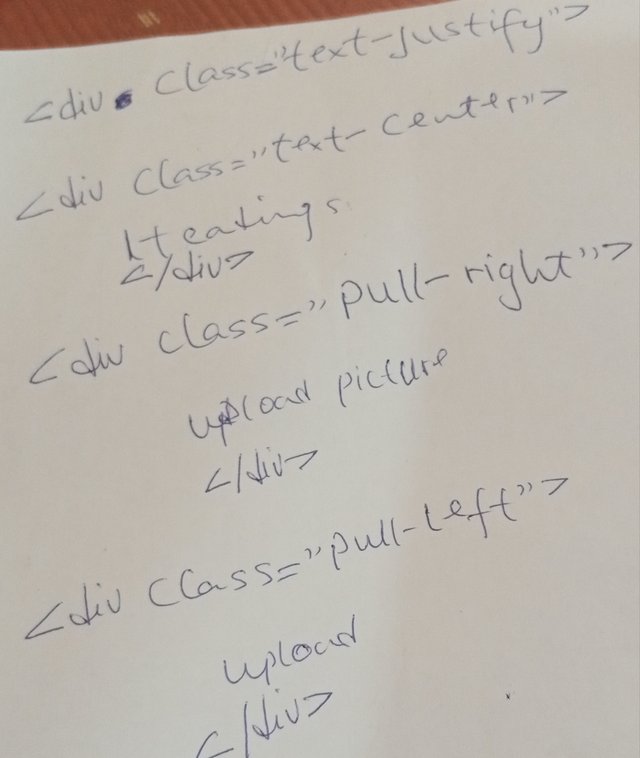 <div class="text-justify">
<div class="text-center">
Headings
</div>
<div class="pull-right">
upload picture
</div>
<div class="pull-left">
upload
</div>